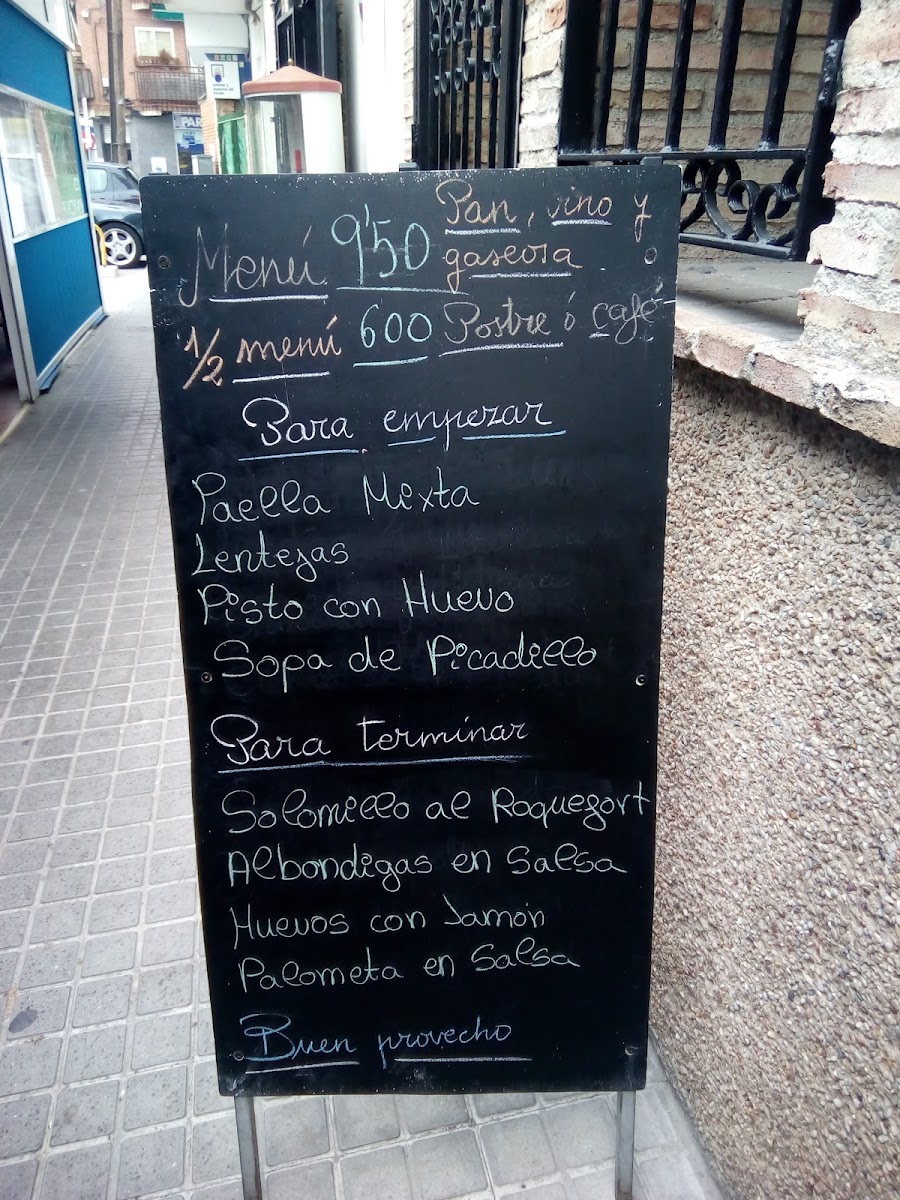 Menú 9'50 Pan, vino y
gaseosa
1/2 menú 600 Postre ó café
Para empezar
Paella Mixta
Lentejas
Pisto con Huevo
Sopa de Picadillo
Para terminar
Solomillo al Roquefort
Albondigas en Salsa
Huevos con Jamón
Palometa en Salsa
Buen provecho
PAR